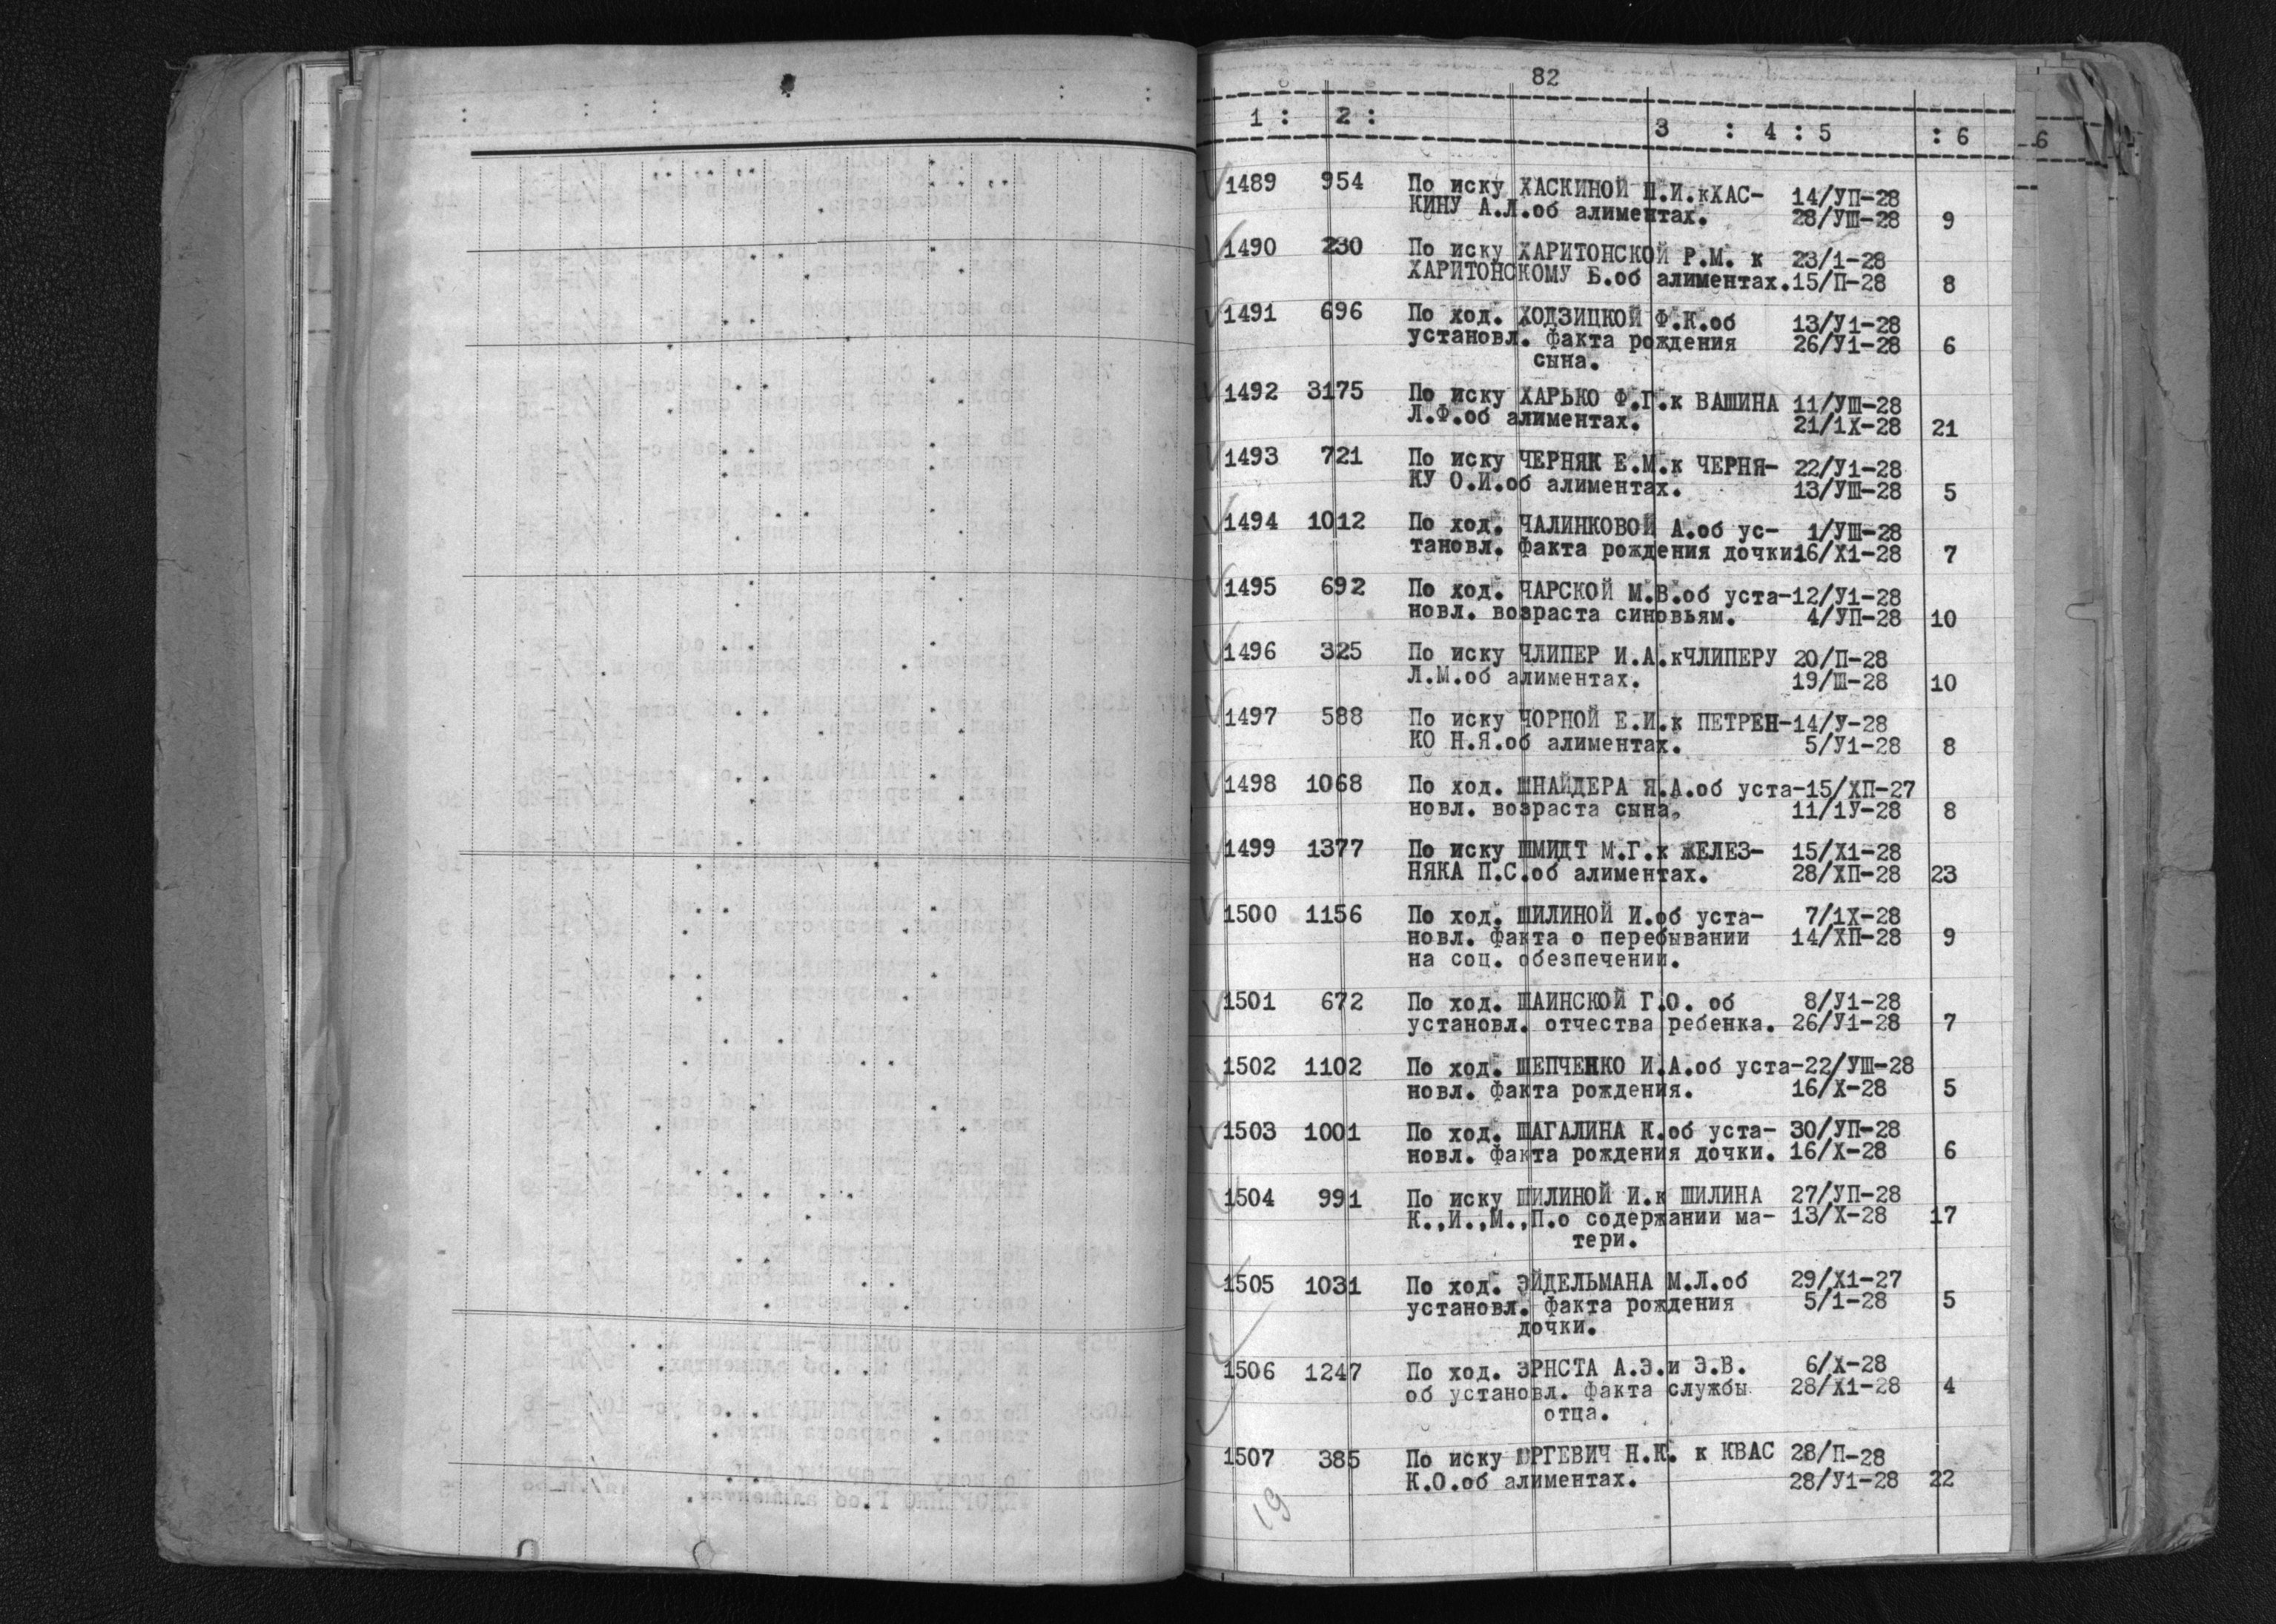 82
1 : 2 : 3 : 4 : 5 : 6
6
1489 954 По иску ХАСКИНОЙ П.И.кХАС- 14/УП-28
КИНУ А.Л.об алиментах. 28/УШ-28 9
1490 230 По иску ХАРИТОНСКОЙ Р.М. к 23/1-28
ХАРИТОНСКОМУ Б.об алиментах.15/П-28 8
1491 696 По ход. ХОДЗИЦКОЙ Ф.К.об 13/У1-28
установл. факта рождения 26/У1-28 6
сына.
1492 3175 По иску ХАРЬКО Ф.Г.к ВАШИНА 11/УШ-28
Л.Ф.об алиментах. 21/1Х-28 21
1493 721 По иску ЧЕРНЯК Е.М.к ЧЕРНЯ- 22/У1-28
КУ О.И.об алиментах. 13/УШ-28 5
1494 1012 По ход. ЧАЛИНКОВОЙ А.об ус- 1/УШ-28
тановл. факта рождения дочки16/Х1-28 7
1495 692 По ход. ЧАРСКОЙ М.В.об уста-12/У1-28
новл. возраста синовьям. 4/УП-28 10
1496 325 По иску ЧЛИПЕР И.А.кЧЛИПЕРУ 20/П-28
Л.М.об алиментах. 19/Ш-28 10
1497 588 По иску ЧОРНОЙ Е.И.к ПЕТРЕН-14/У-28
КО Н.Я.об алиментах. 5/У1-28 8
1498 1068 По ход. ШНАЙДЕРА Я.А.об уста-15/ХП-27
новл. возраста сына. 11/1У-28 8
1499 1377 По иску ШМИДТ М.Г.к ЖЕЛЕЗ- 15/Х1-28
НЯКА П.С.об алиментах. 28/ХП-28 23
1500 1156 По ход. ШИЛИНОЙ И.об уста- 7/1Х-28
новл. факта о перебывании 14/ХП-28 9
на соц. обезпечении.
1501 672 По ход. ШАИНСКОЙ Г.О. об 8/У1-28
установл. отчества ребенка. 26/У1-28 7
1502 1102 По ход. ШЕПЧЕНКО И.А.об уста-22/УШ-28
новл. факта рождения. 16/Х-28 5
1503 1001 По ход. ШАГАЛИНА К.об уста- 30/УП-28
новл. факта рождения дочки. 16/Х-28 6
1504 991 По иску ШИЛИНОЙ И.к ШИЛИНА 27/УП-28
К.,И.,М.,П.о содержании ма- 13/Х-28 17
тери.
1505 1031 По ход. ЭЙДЕЛЬМАНА М.Л.об 29/Х1-27
установл. факта рождения 5/1-28 5
дочки.
1506 1247 По ход. ЭРНСТА А.Э.и Э.В. 6/Х-28
об установл. факта службы 28/Х1-28 4
отца.
1507 385 По иску ЮРГЕВИЧ Н.К. к КВАС 28/П-28
К.О.об алиментах. 28/У1-28 22
19